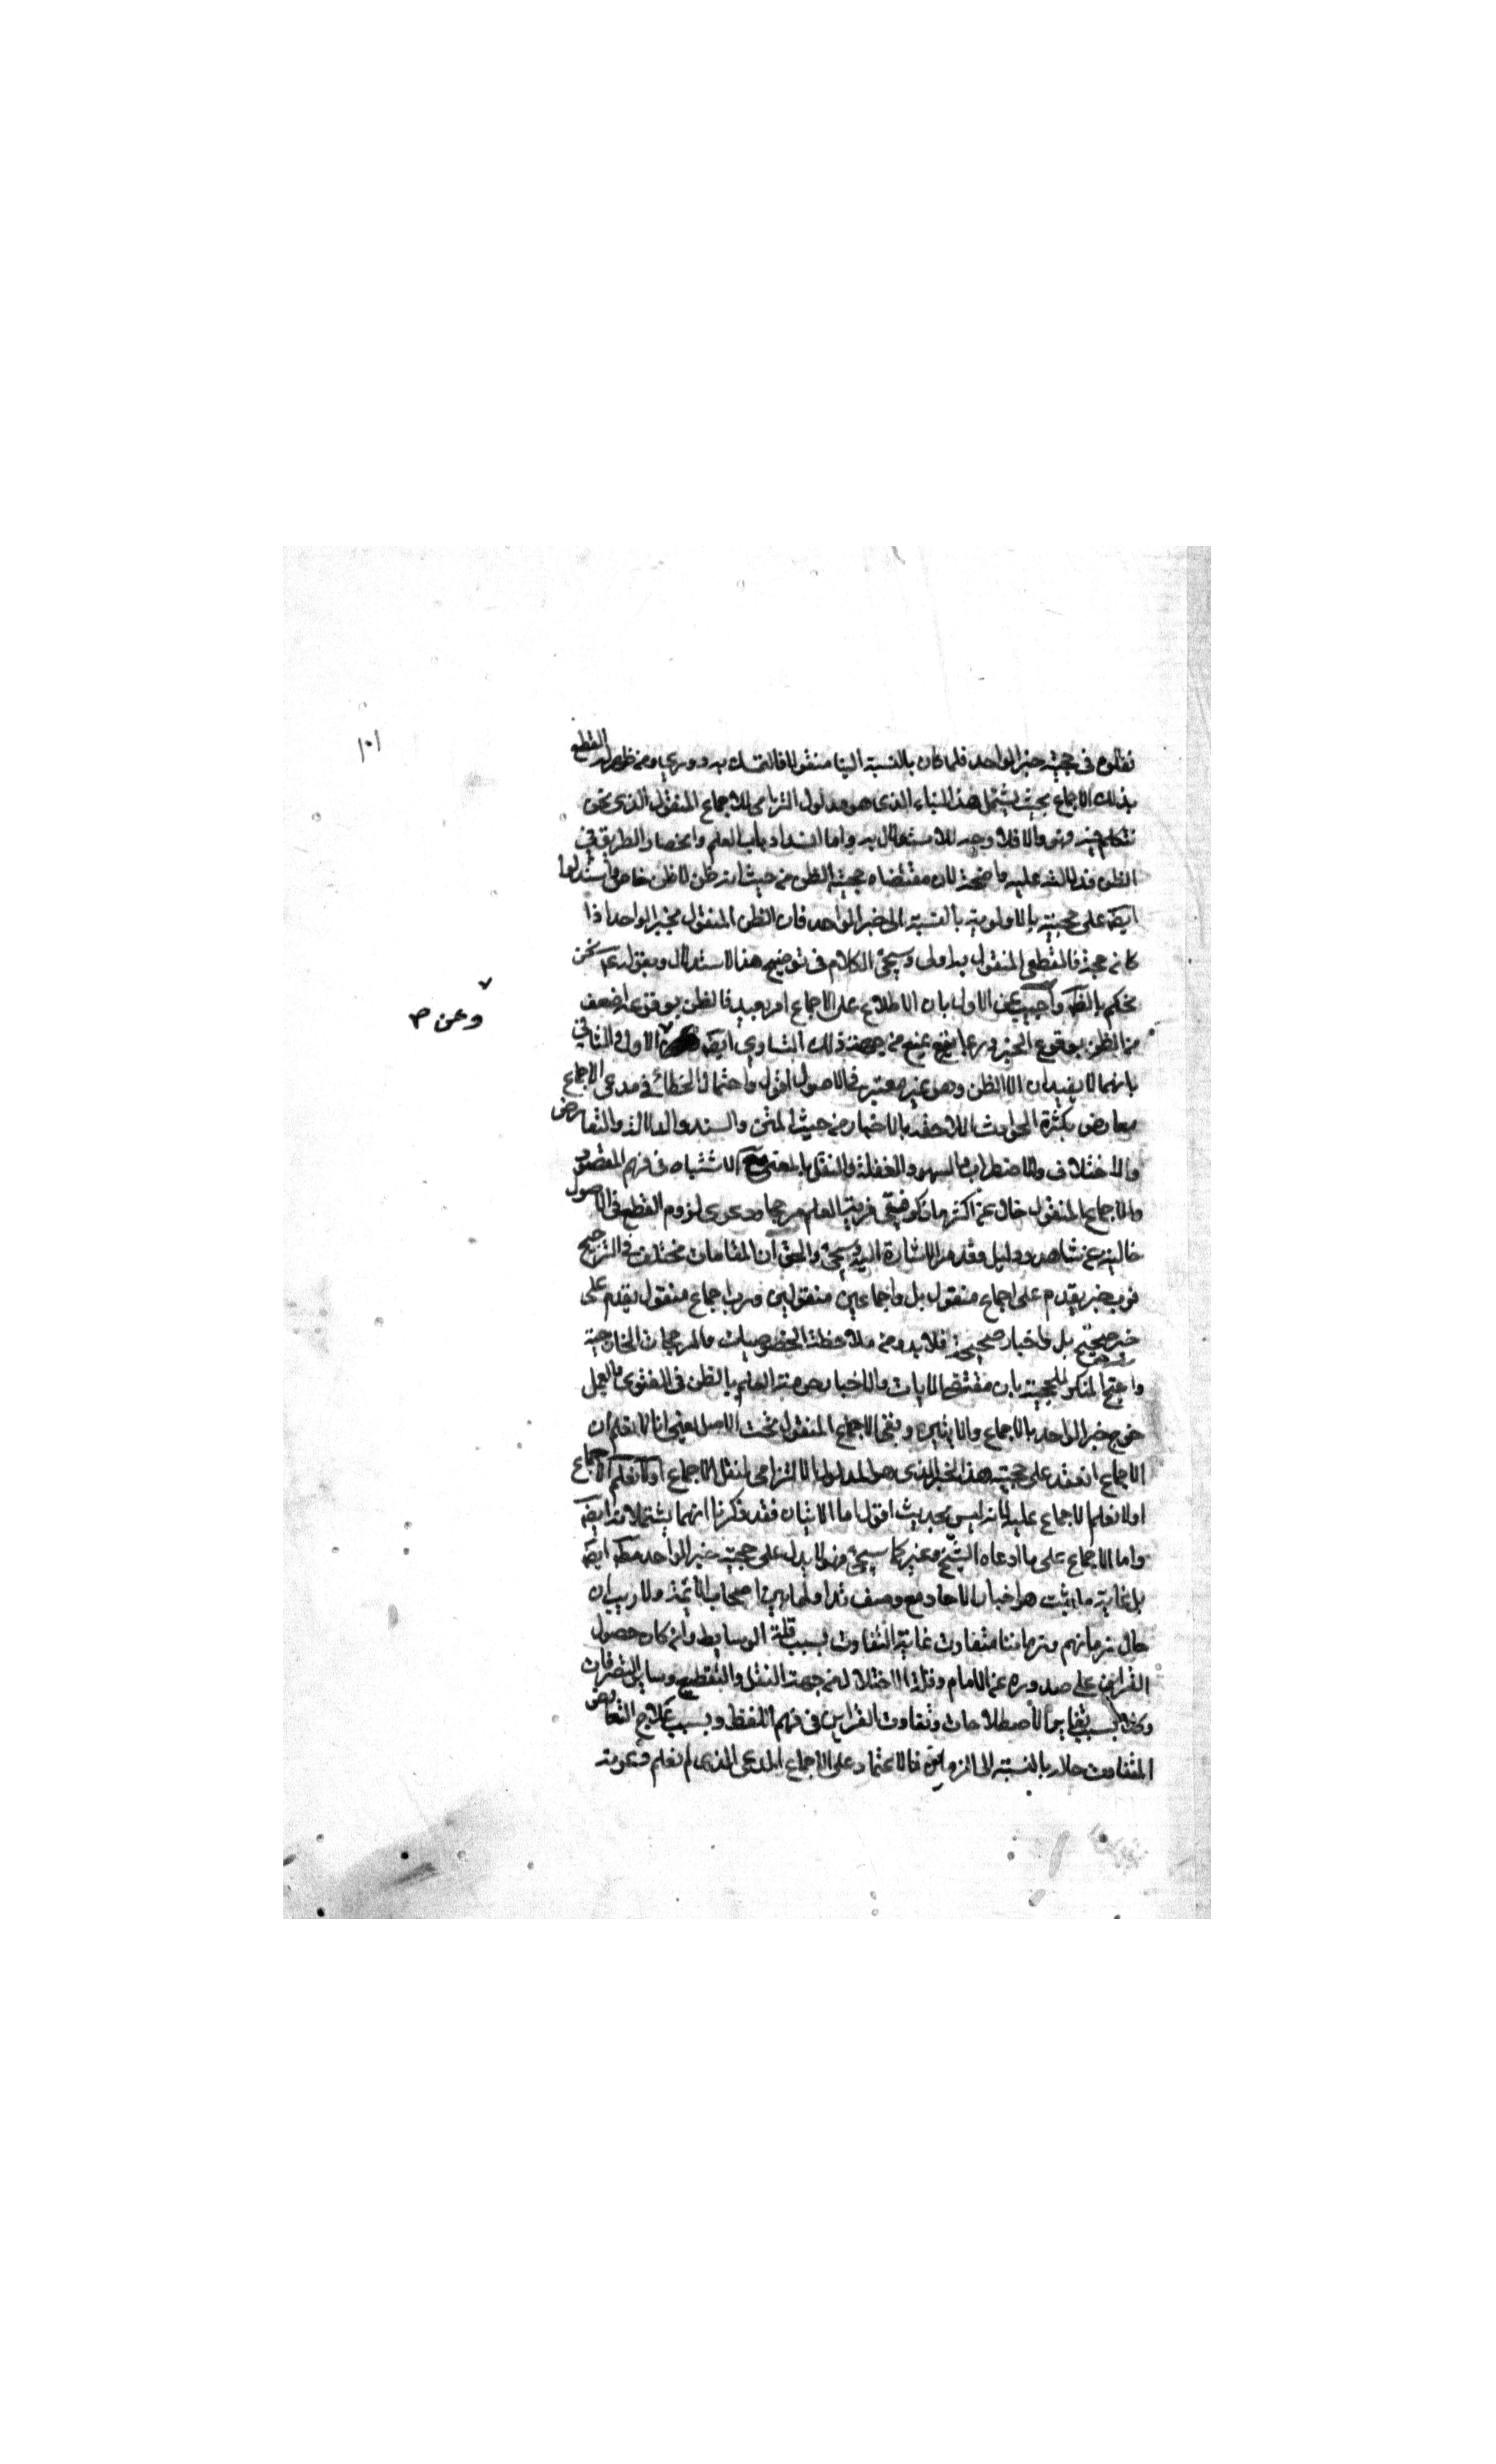 ١٠١
نقلوه في حجية خبر الواحد فلما كان بالنسبة الينا منقولا فالتمسك به دوري ومن ظهر له القطع
بذلك الاجماع بحيث يشمل هذا البناء الذي هو مدلول التزامي للاجماع المنقول الذي نحن
نتكلم فيه فهو والا فلا وجه للاستدلال به واما انسداد باب العلم وانحصار الطريق في
الظن فدلالته عليه واضحة لان مقتضاه حجية الظن من حيث انه ظن لا ظن خاص واستدلوا
ايضا على حجيته بالاولوية بالنسبة الى خبر الواحد فان الظن المنقول بخبر الواحد اذا
كان حجة فالقطعي المنقول به اولى وسيجئ الكلام في توضيح هذا الاستدلال وبقوله ع نحن
نحكم بالظ واجيب عن الاول بان الاطلاع على الاجماع امر بعيد فالظن بوقوعه اضعف
من الظن بوقوع الخبر وربما يمنع من جهة ذلك التساوي ايض الاولى الثاني
وعن صح
بانهما لا يفيدان الا الظن وهو غير معتبر في الاصول اقول واحتمال الخطائ في مدعى الاجماع
معارض بكثرة الحوادث اللاحقة بالاخبار من حيث المتن والسند والدلالة والتعارض
والاختلاف والاضطراب والسهو والغفلة والنقل بالمعنى مع الاشتباه في فهم المقصود
والاجماع المنقول خال عن اكثر ما ذكر فيبقى مزية العلم مرجحا ودعوى لزوم القطع في الاصول
خالية عن شاهد ودليل وقد مر الاشارة اليه وسيجئ والحق ان المقامات مختلف في الترجيح
فرب خبر يقدم على اجماع منقول بل واجماعين منقولين ورب اجماع منقول يقدم على
خبر صحيح بل واخبار صحيحة فلا بد من ملاحظة الخصوصيات والمرجحات الخارجية
واحتج المنكر للحجية بان مقتضى الايات والاخبار حرمة العلم بالظن في الفتوى والعمل
خرج خبر الواحد بالاجماع والايتين وبقي الاجماع المنقول تحت الاصل يعني انا لا نعلم ان
الاجماع انعقد على حجية هذا الخبر الذي هو المدلول الالتزامي لنقل الاجماع او لا نعلم الاجماع
او لا نعلم الاجماع عليه لانه ليس بحديث اقول اما الايتان فقد ذكرنا انهما يشتملانه ايض
واما الاجماع على ما ادعاه الشيخ وغيره كما سيجئ فهو لا يدل على حجية خبر الواحد مط ايض
بل غاية ما يثبت هو اخبار الاحاد مع وصف تداولها بين اصحاب الائمة ولا ريب ان
حال زمانهم وزماننا متفاوت غاية التفاوت بسبب قلة الوسايط وامكان حصول
القراين على صدوره عن الامام وقلة الاختلال من جهة النقل والتقطيع وساير التصرفات
وكذا بسبب تغاير الاصطلاحات وتفاوت القراين في فهم اللفظ وبسبب علاج التعارض
المتفاوت حاله بالنسبة الى الزمانين فالاعتماد على الاجماع المدعى الذي لم نعلم دعويه